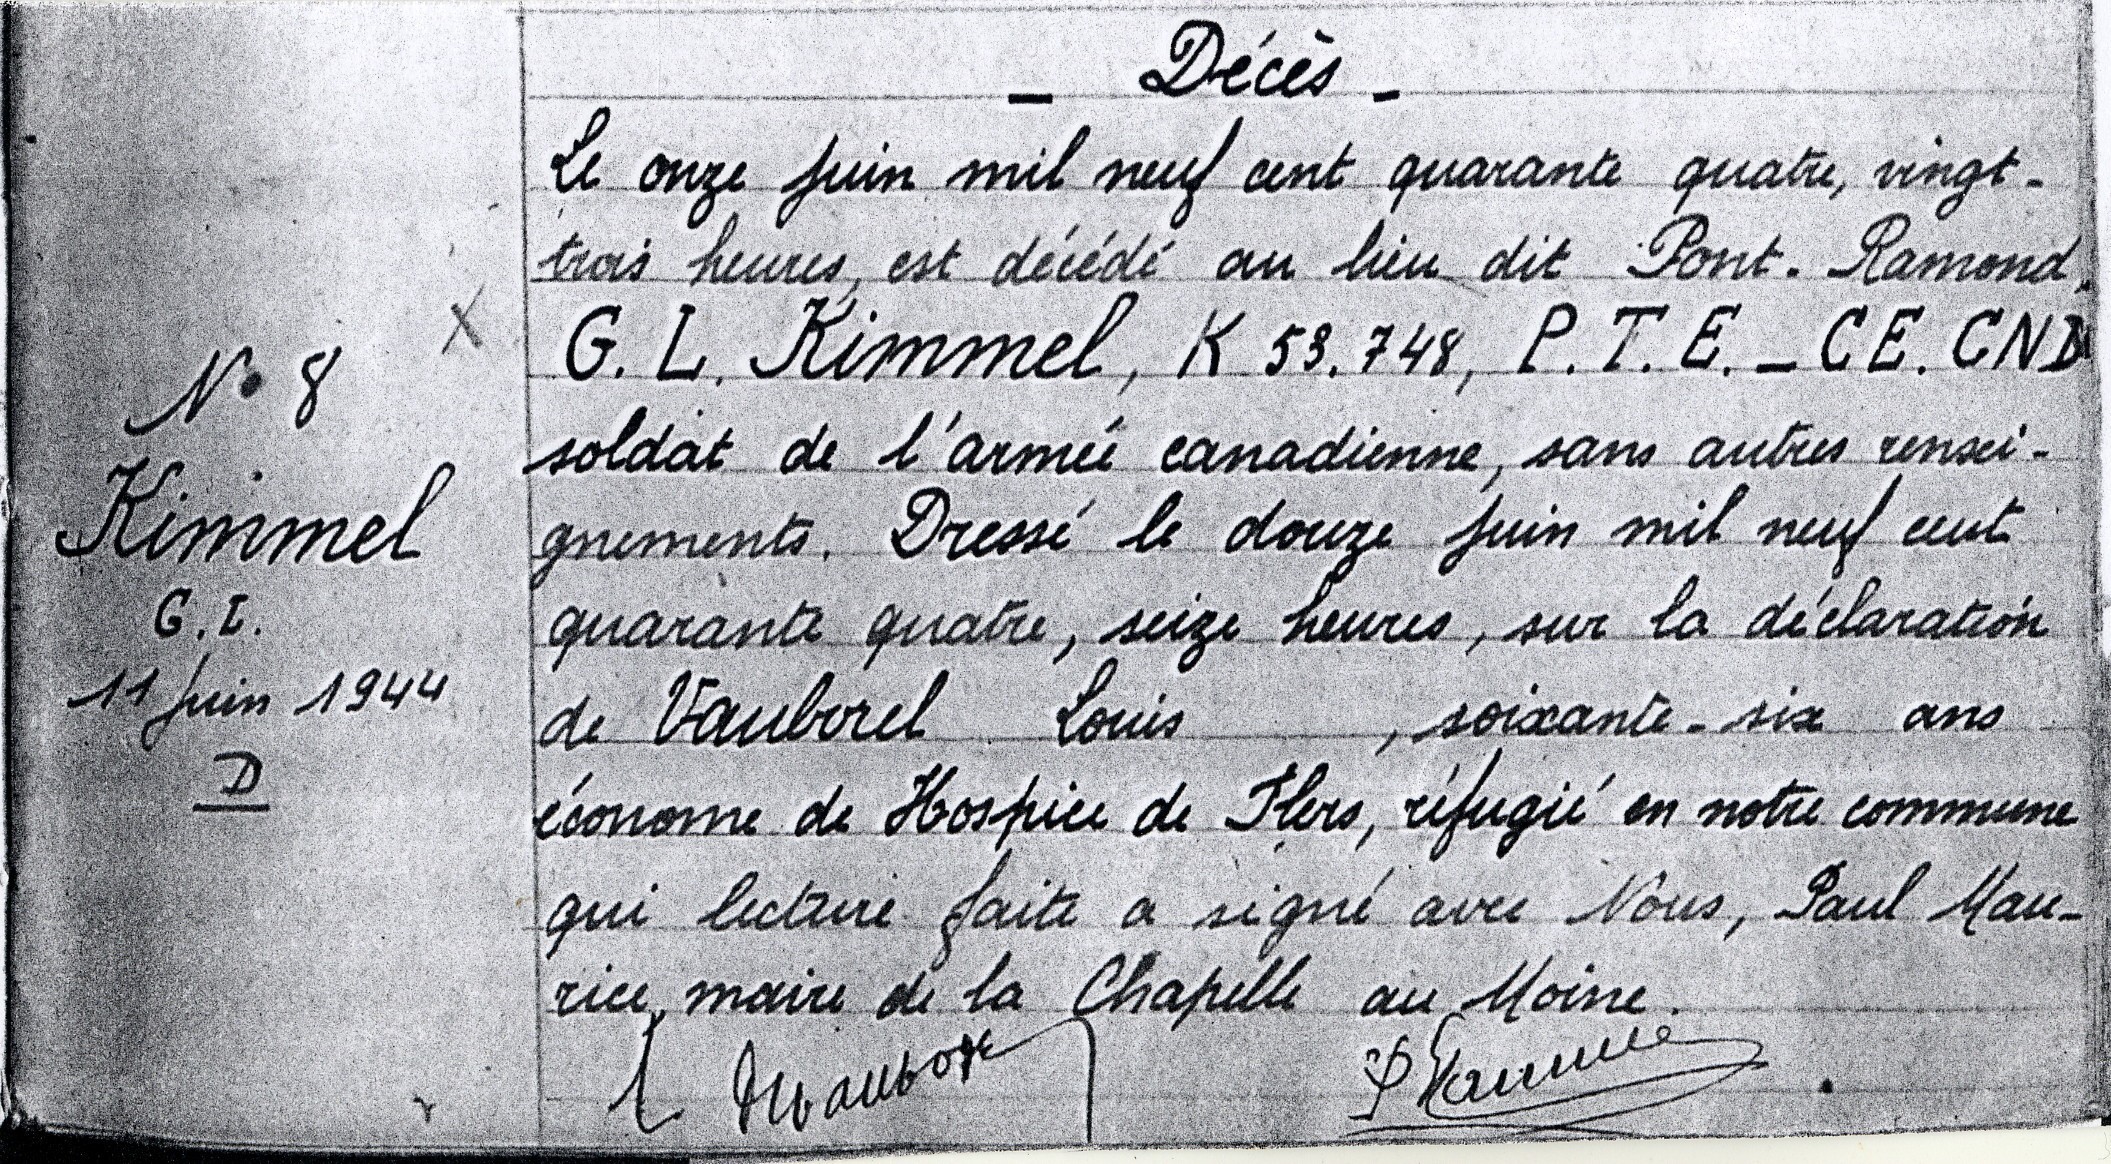 - Décès -
Le onze juin mil neuf cent quarante quatre, vingt-
trois heures, est décédé au lieu dit Pont-Ramond,
G. L. Kimmel, K 53.748, P.T.E. - CE. CND
soldat de l'armée canadienne, sans autres rensei-
gnements. Dressé le douze juin mil neuf cent
quarante quatre, seize heures, sur la déclaration
de Vauborel Louis , soixante-six ans
économe de Hospice de Flers, réfugié en notre commune
qui lecture faite a signé avec Nous, Paul Mau-
rice, maire de la Chapelle au Moine.
N° 8
Kimmel
G. L.
11 juin 1944
D